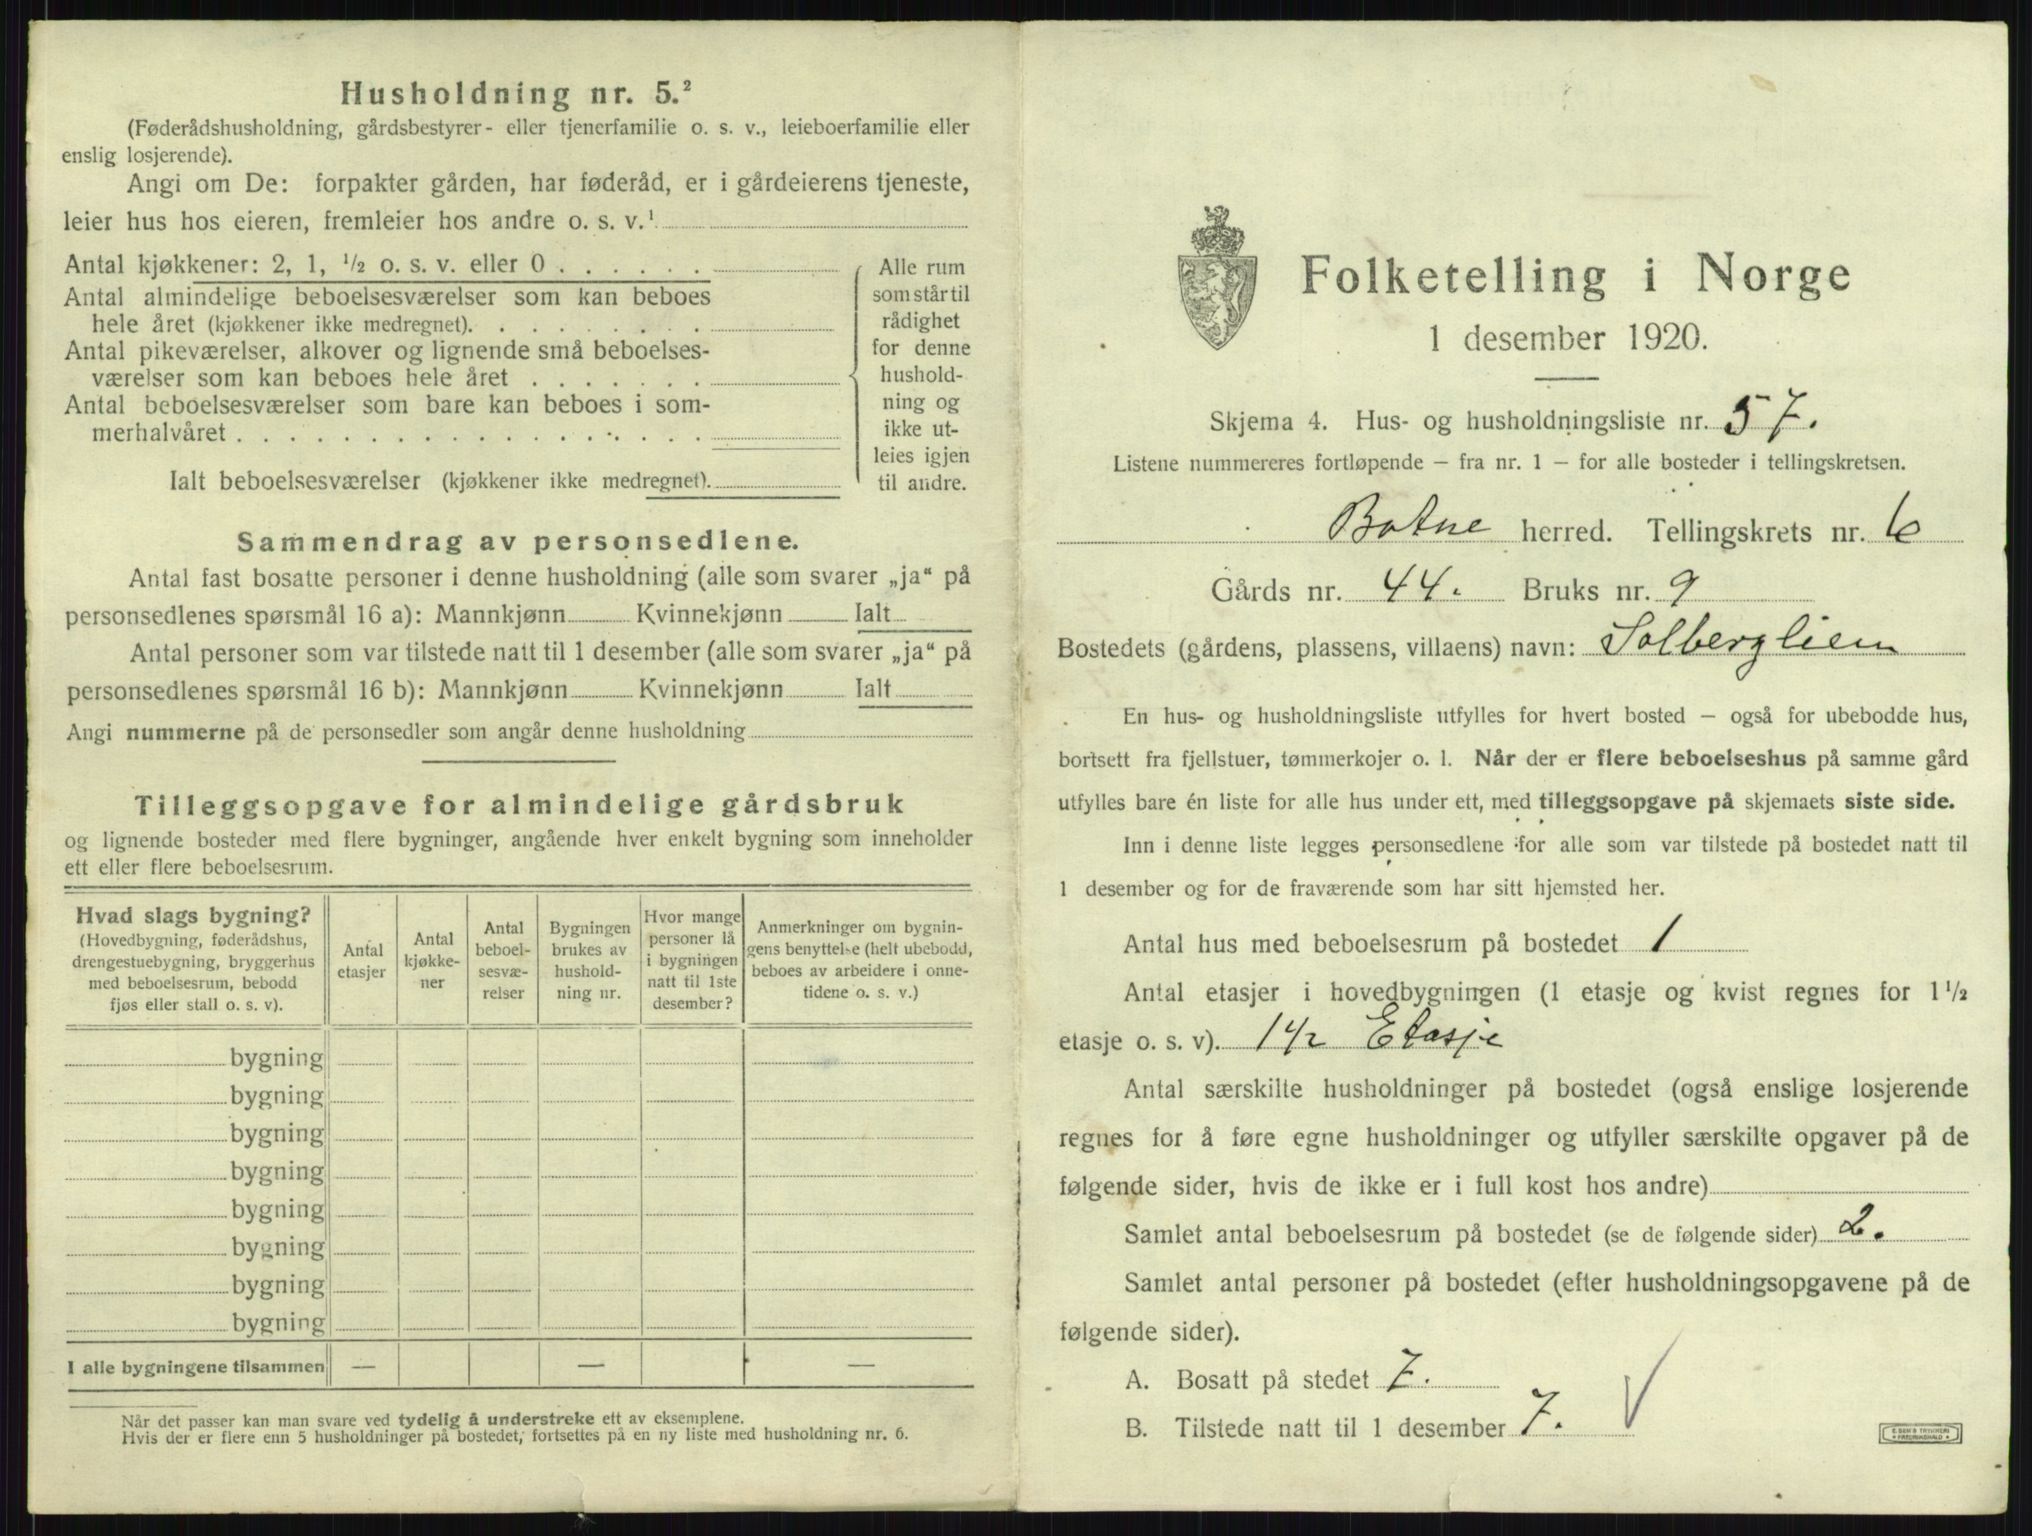 Husholdning nr. 5.²
(Føderådshusholdning, gårdsbestyrer- eller tjenerfamilie o. s. v., leieboerfamilie eller
enslig losjerende).
Angi om De: forpakter gården, har føderåd, er i gårdeierens tjeneste,
leier hus hos eieren, fremleier hos andre o. s. v.¹
Antal kjøkkener: 2, 1, ½ o. s. v. eller 0 . . . . . .
Antal almindelige beboelsesværelser som kan beboes
hele året (kjøkkener ikke medregnet). . . . . . . . .
Antal pikeværelser, alkover og lignende små beboelses-
værelser som kan beboes hele året . . . . . . .
Antal beboelsesværelser som bare kan beboes i som-
merhalvåret . . . . . . . . . . . . . . . . . .
Ialt beboelsesværelser (kjøkkener ikke medregnet).
Alle rum
som står til
rådighet
for denne
hushold-
ning og
ikke ut-
leies igjen
til andre.
Sammendrag av personsedlene.
Antal fast bosatte personer i denne husholdning (alle som svarer „ja“ på
personsedlenes spørsmål 16 a): Mannkjønn Kvinnekjønn Ialt
Antal personer som var tilstede natt til 1 desember (alle som svarer „ja“ på
personsedlenes spørsmål 16 b): Mannkjønn Kvinnekjønn Ialt
Angi nummerne på de personsedler som angår denne husholdning
Tilleggsopgave for almindelige gårdsbruk
og lignende bosteder med flere bygninger, angående hver enkelt bygning som inneholder
ett eller flere beboelsesrum.
Hvad slags bygning?
(Hovedbygning, føderådshus,
drengestuebygning, bryggerhus
med beboelsesrum, bebodd
fjøs eller stall o. s. v).
Antal
etasjer
Antal
kjøkke-
ner
Antal
beboel-
sesvæ-
relser
Bygningen
brukes av
hushold-
ning nr.
Hvor mange
personer lå
i bygningen
natt til 1ste
desember?
Anmerkninger om bygnin-
gens benyttelse (helt ubebodd,
beboes av arbeidere i onne-
tidene o. s. v.)
bygning
bygning
bygning
bygning
bygning
bygning
bygning
bygning
I alle bygningene tilsammen — — —
Når det passer kan man svare ved tydelig å understreke ett av eksemplene.
Hvis der er flere enn 5 husholdninger på bostedet, fortsettes på en ny liste med husholdning nr. 6.
Folketelling i Norge
1 desember 1920.
Skjema 4. Hus- og husholdningsliste nr. 57.
Listene nummereres fortløpende – fra nr. 1 – for alle bosteder i tellingskretsen.
Botne herred. Tellingskrets nr. 6
Gårds nr. 44. Bruks nr. 9
Bostedets (gårdens, plassens, villaens) navn: Solberglien
En hus- og husholdningsliste utfylles for hvert bosted – også for ubebodde hus,
bortsett fra fjellstuer, tømmerkojer o. l. Når der er flere beboelseshus på samme gård
utfylles bare én liste for alle hus under ett, med tilleggsopgave på skjemaets siste side.
Inn i denne liste legges personsedlene for alle som var tilstede på bostedet natt til
1 desember og for de fraværende som har sitt hjemsted her.
Antal hus med beboelsesrum på bostedet 1
Antal etasjer i hovedbygningen (1 etasje og kvist regnes for 1½
etasje o. s. v). 1 1/2 Etasje
Antal særskilte husholdninger på bostedet (også enslige losjerende
regnes for å føre egne husholdninger og utfyller særskilte opgaver på de
følgende sider, hvis de ikke er i full kost hos andre)
Samlet antal beboelsesrum på bostedet (se de følgende sider) 2.
Samlet antal personer på bostedet (efter husholdningsopgavene på de
følgende sider).
A. Bosatt på stedet 7.
B. Tilstede natt til 1 desember 7. V
E. SEM'S TRYKKERI
FREDRIKSHALD